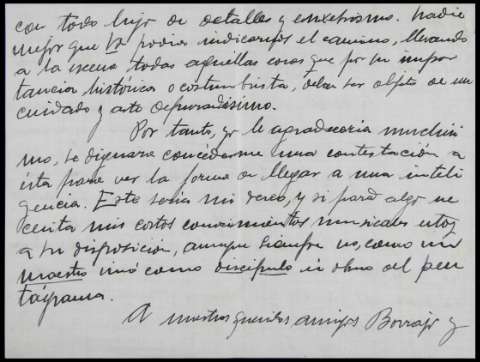 con todo lujo de detalles y
mejor que V. podría indicarnos el camino, llevando
a la escena todas aquellas cosas que por su impor
tancia histórica o costumbrista, deban ser objeto de un
cuidado y arte depuradísimo.
Por tanto, yo le agradecería muchísi
mo, se dignara concederme una contestación a
ésta para ver la forma de llegar a una inteli
gencia. Este sería mi deseo, y si para algo ne
cesita mis cortos conocimientos musicales estoy
a su disposición, aunque siempre no, como un
maestro sinó como discípulo en obra del pen
tágrama.
A nuestros queridos amigos Borrajo y